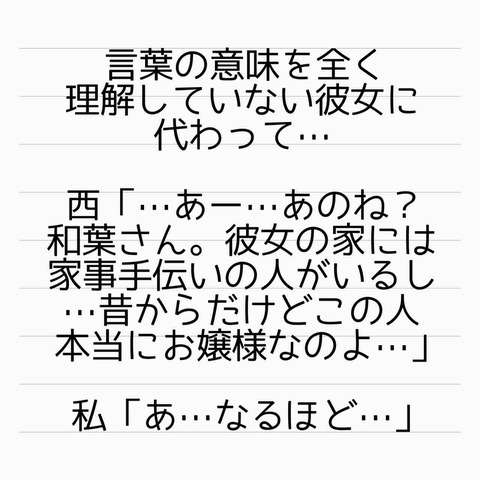 言葉の意味を全く
理解していない彼女に
代わって…
西「…あー…あのね？
和葉さん。彼女の家には
家事手伝いの人がいるし
…昔からだけどこの人
本当にお嬢様なのよ…」
私「あ…なるほど…」